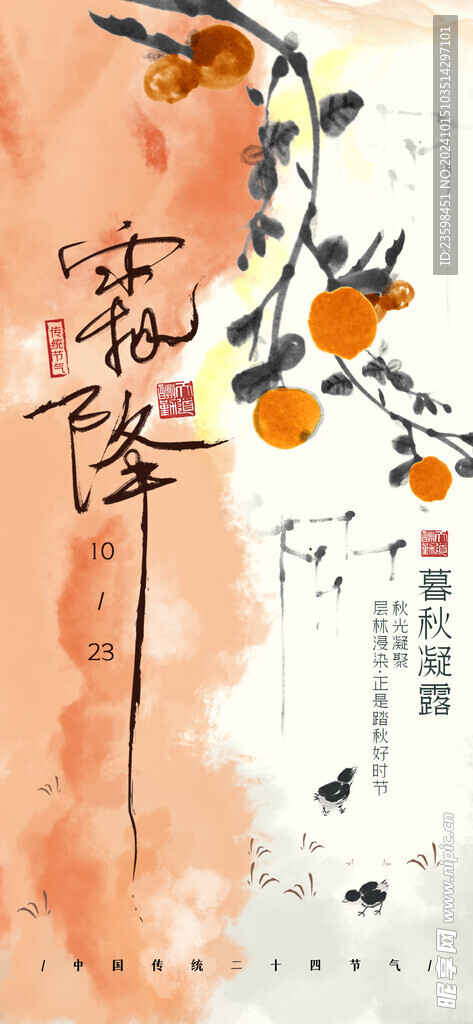 霜降
传统节气
天道酬勤
10
/
23
暮秋凝露
秋光凝聚
层林浸染·正是踏秋好时节
/中国传统二十四节气/
ID:23598451 NO:20241015103514297101
昵享网 www.nipic.cn